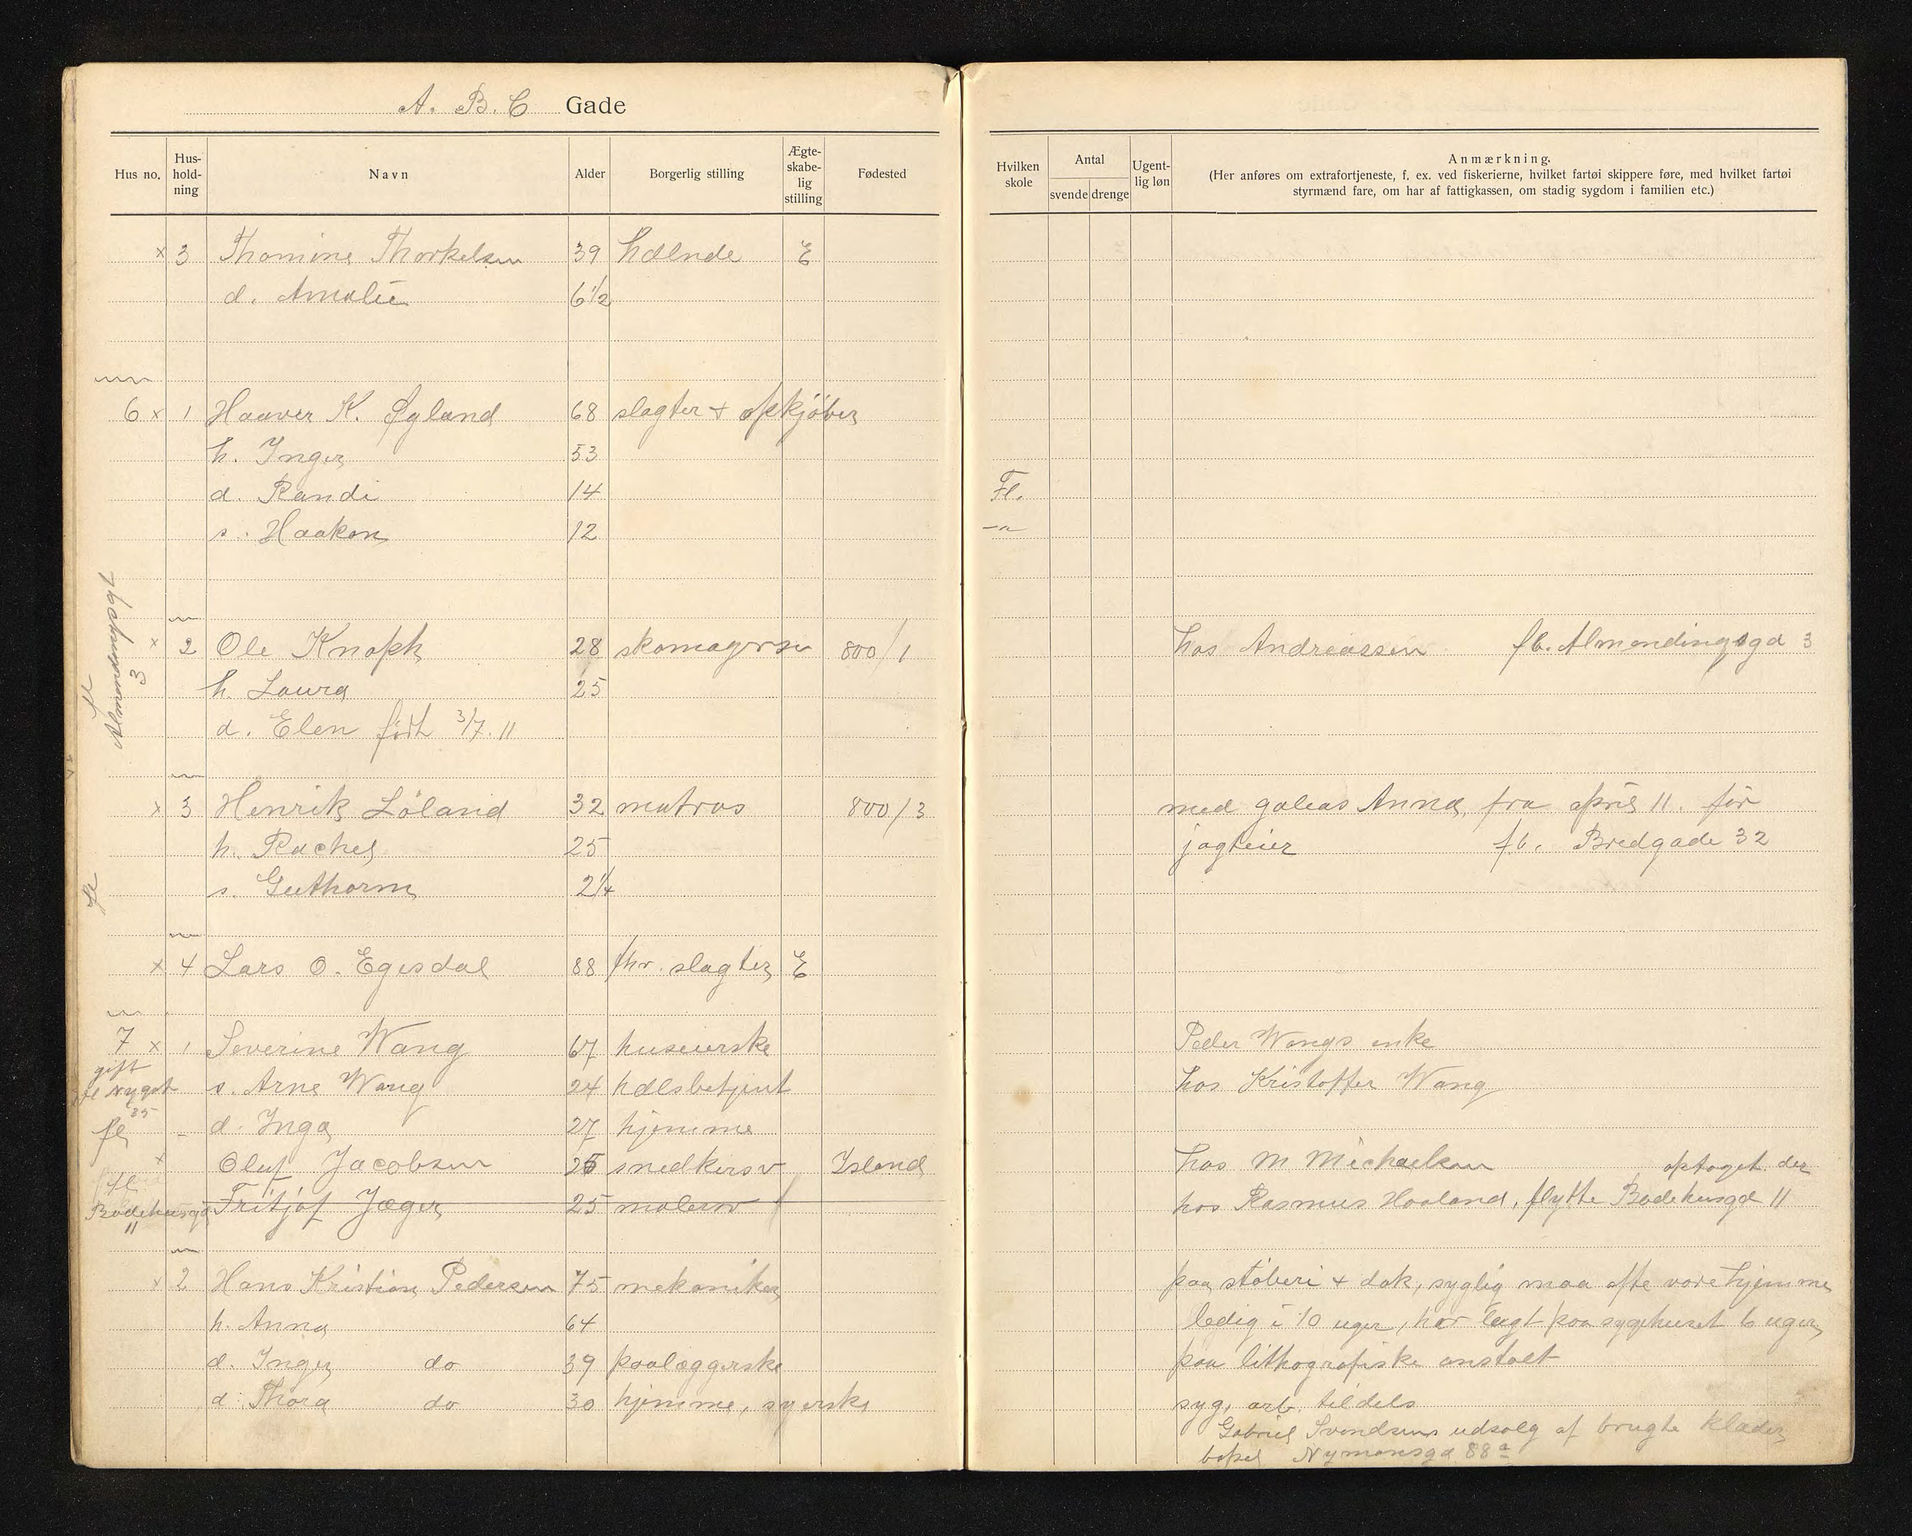 A. B. C Gade
Hus no. Hus-hold-ning Navn Alder Borgerlig stilling Ægte-skabe-lig stilling Fødested
Hvilken skole Antal svende drenge Ugent-lig løn Anmærkning.
(Her anføres om extrafortjeneste, f. ex. ved fiskerierne, hvilket fartøi skippere føre, med hvilket fartøi
styrmænd fare, om har af fattigkassen, om stadig sygdom i familien etc.)
x 3 Thomine Thorkelsen 39 hdlnde E
d. Amalie 6 1/2
6 x 1 Haaver K. Øgland 68 slagter + opkjøber
h. Inger 53
d. Randi 14 Fl.
s. Haakon 12 -"-
x 2 Ole Knoph 28 skomagersv 800/1 hos Andreassen fb. Almendingsgd 3
h. Laura 25
d. Elen født 3/7. 11
fl
3
x 3 Henrik Löland 32 matros 800/3 med galeas Anna, fra april 11. før
h. Rachel 25 jagteier fb. Bredgade 32
s. Guthorm 2 1/4
fl
x 4 Lars O. Egesdal 88 fhv. slagter E
7 x 1 Severine Wang 67 huseierske Peder Wangs enke
gift
fl Nygt 35 s. Arne Wang 24 hdlsbetjent hos Kristoffer Wang
fl - d. Inga 27 hjemme
x Oluf Jacobsen 26 snedkersv Island hos M Michaelsen optaget der
fl Badehusgd 11 Fritjof Jæger 25 malersv hos Rasmus Haaland, flytte Badehusgd 11
x 2 Hans Kristian Pedersen 75 mekaniker paa støberi + dok, syglig maa ofte være hjemme
h. Anna 64 ledig i 10 uger, har lagt paa sygehuset 6 uger
d. Inger do 39 paalæggerske paa lithografiske anstalt
d. Thora do 30 hjemme, syerske syg, arb. tildels
Gabriel Svendsens udsalg af brugte klæder
bopæl Nymansgd 88a